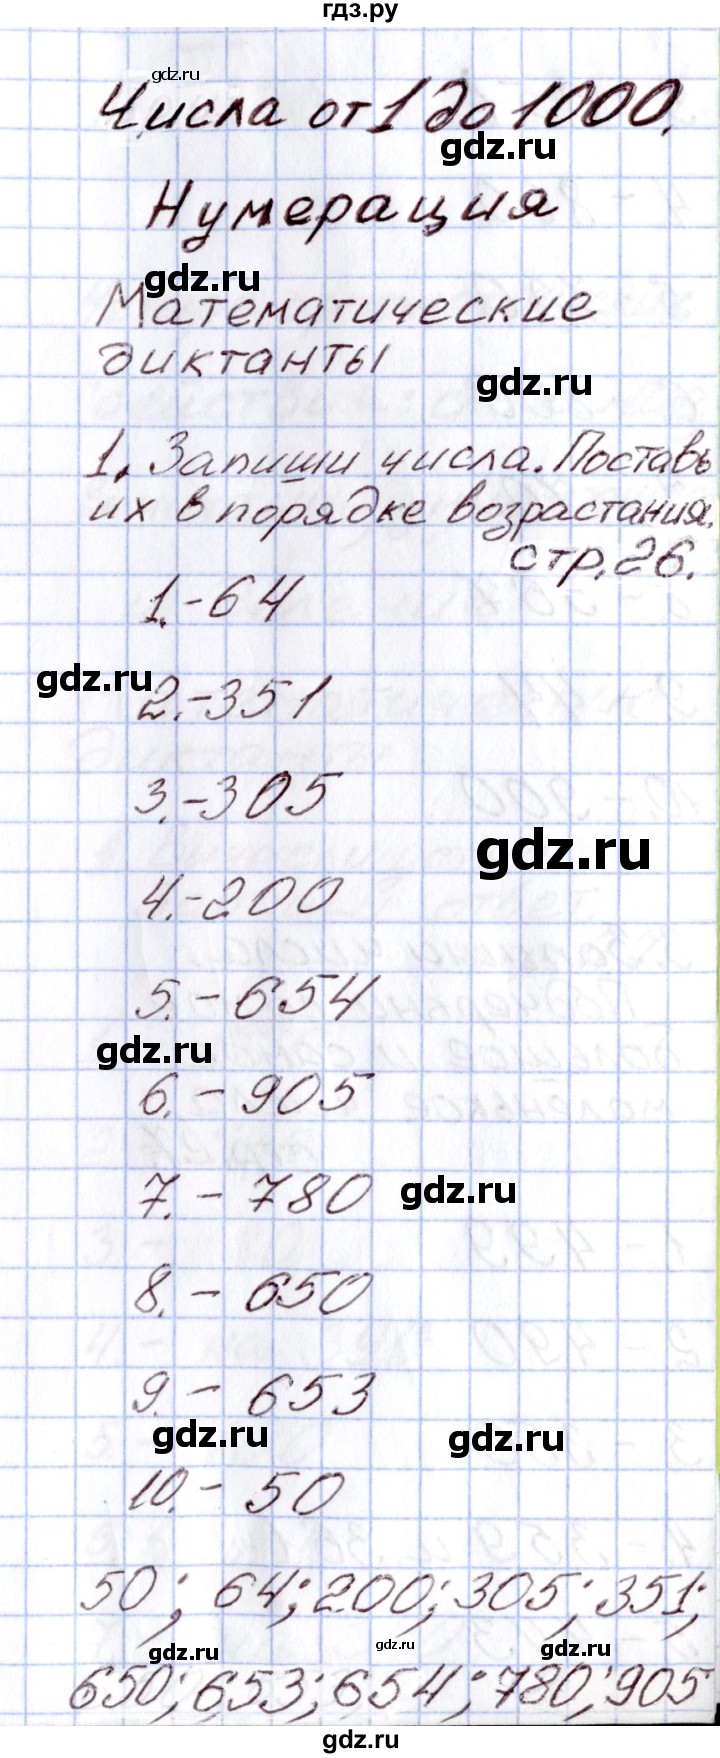 гдз.ру
gdz.ru
Числа от 1 до 1000.
gdz.ru
Нумерация
gdz.ru
Математические
диктанты
gdz.ru
1. Запиши числа. Поставь
их в порядке возрастания.
стр. 26.
1. - 64
gdz.ru
2. - 351
3. - 305
gdz.ru
4. - 200
5. - 654
gdz.ru
6. - 905
7. - 780
gdz.ru
8. - 650
9. - 653
gdz.ru
gdz.ru
10. - 50
50; 64; 200; 305; 351;
gdz.ru
gdz.ru
gdz.ru
650; 653; 654; 780; 905
gdz.ru